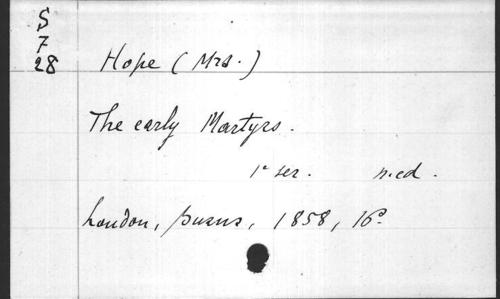 S
7
28
Hope (Mrs.)
The early Martyrs.
1ª ser. n. ed.
London, Burns, 1858, 16º